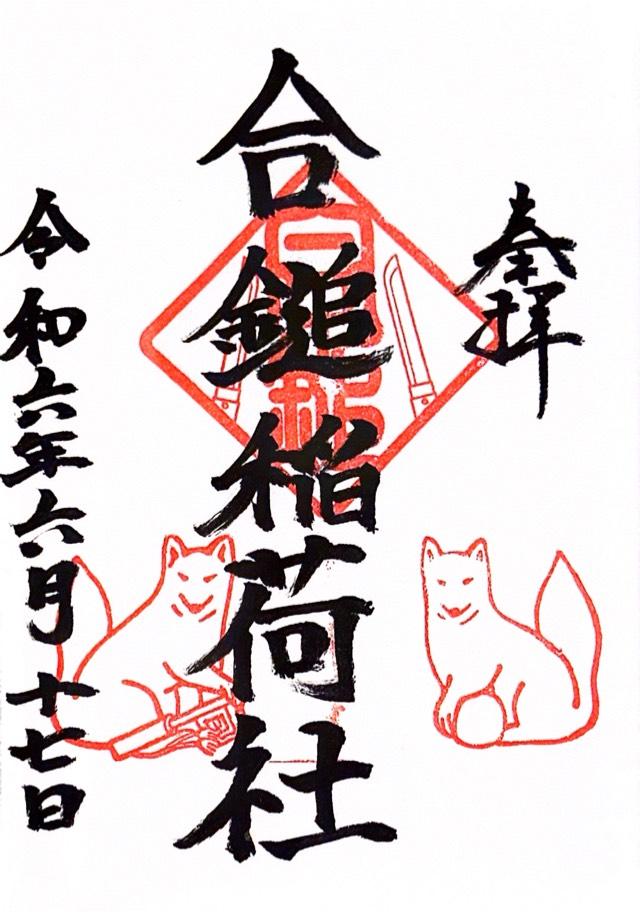 奉拝
合鎚稲荷社
令和六年六月十七日